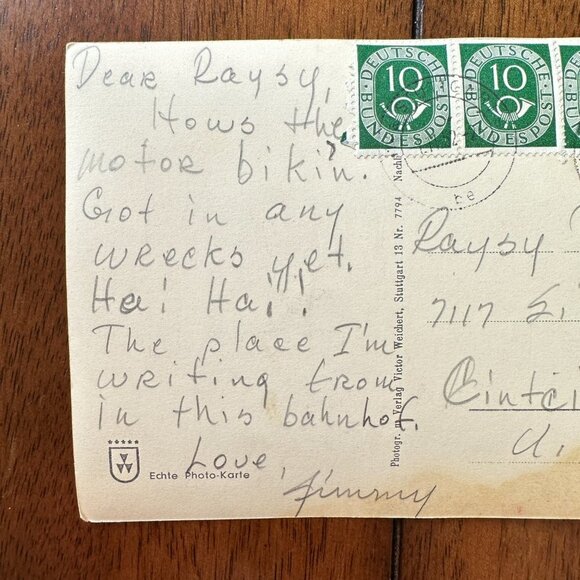 Dear Raysy,
Hows the
motor bikin.
Got in any
wrecks yet.
Ha! Ha!
The place I'm
writing from
in this bahnhof.
Love,
Jimmy
Echte Photo-Karte
Photogr. u. Verlag Victor Weichert, Stuttgart 13 Nr. 7794
DEUTSCHE BUNDESPOST
10
DEUTSCHE BUNDESPOST
10
Raysy
7117
U.